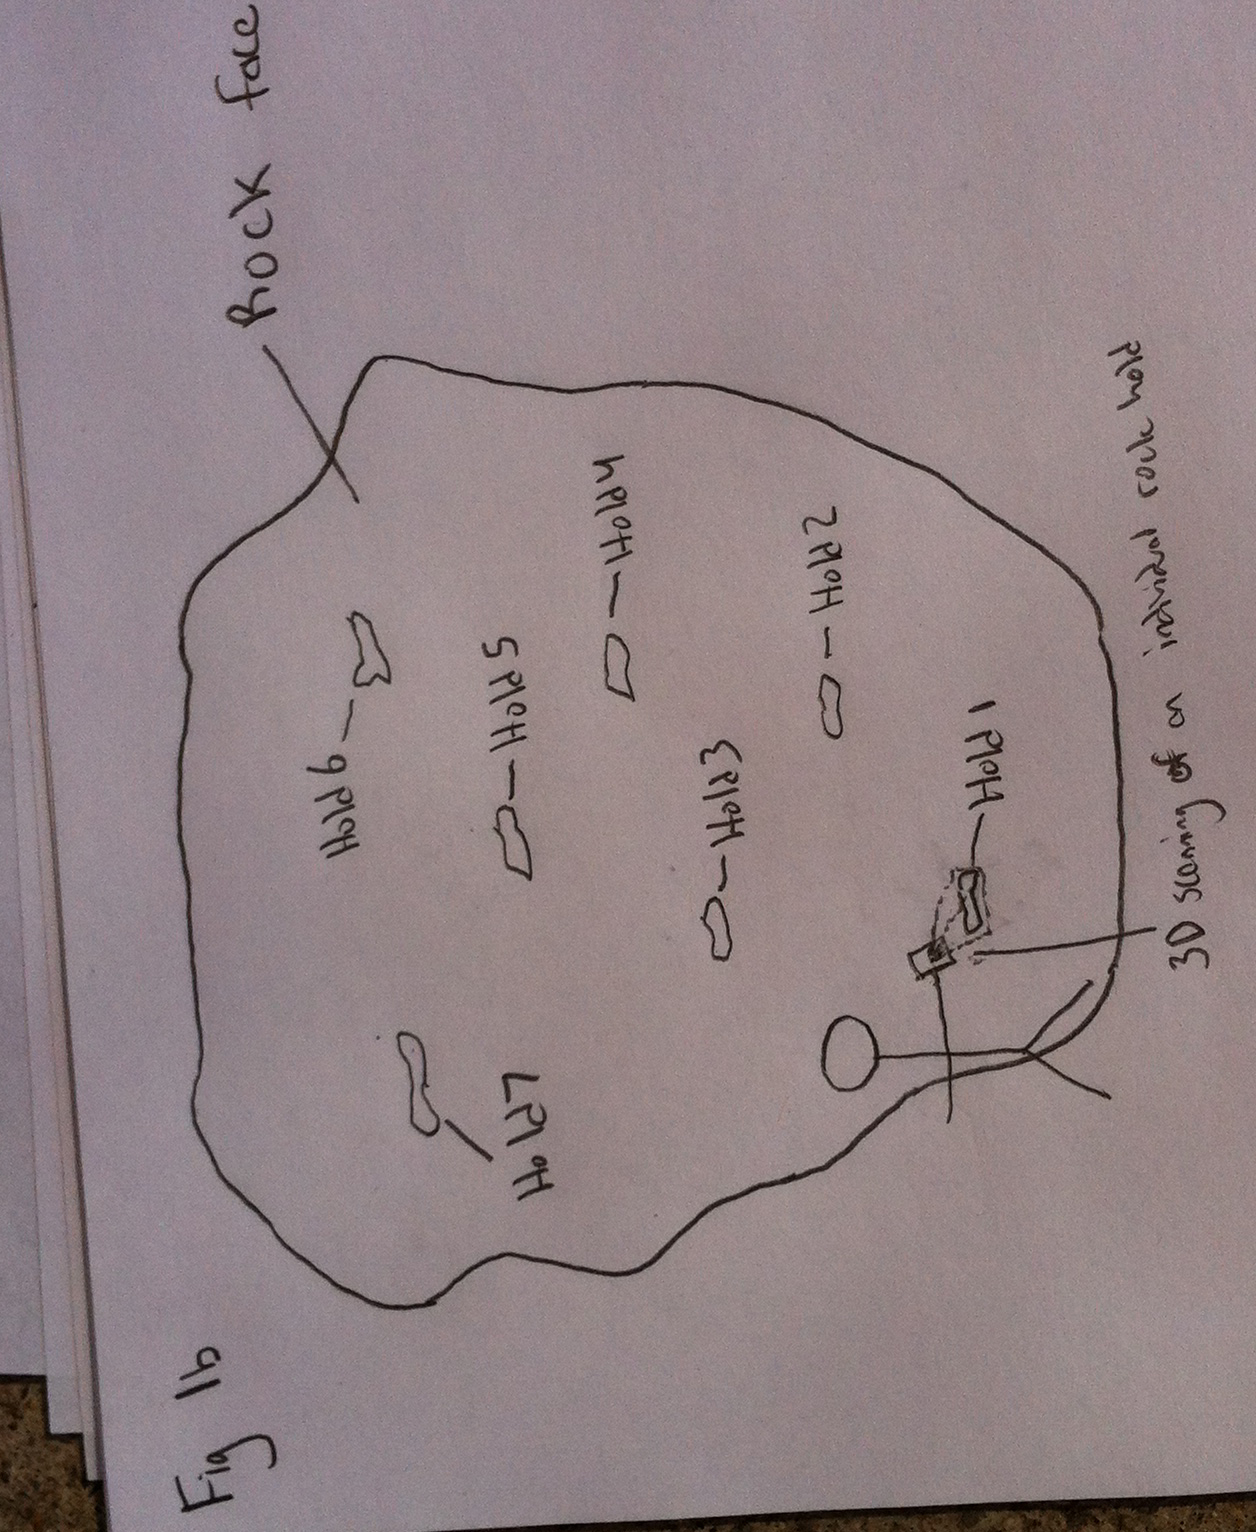 Fig 1b
Rock face
Hold 6
Hold 7
Hold 5
Hold 4
Hold 3
Hold 2
Hold 1
3D scanning of an individual rock hold